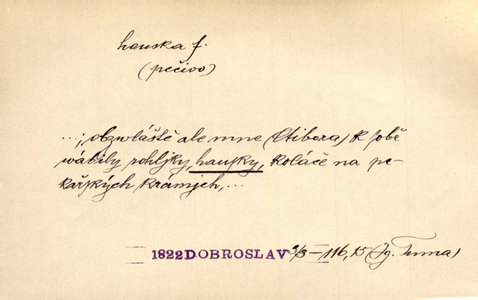 houska f.
(pečivo)
...; obzwláště ale mne (Ctibora) k sobě
wábily rohljky, hausky, koláče na pe-
kařských krámjch, ...
1822 DOBROSLAV 3/3 - 116, 15 (Ig. Tuma)